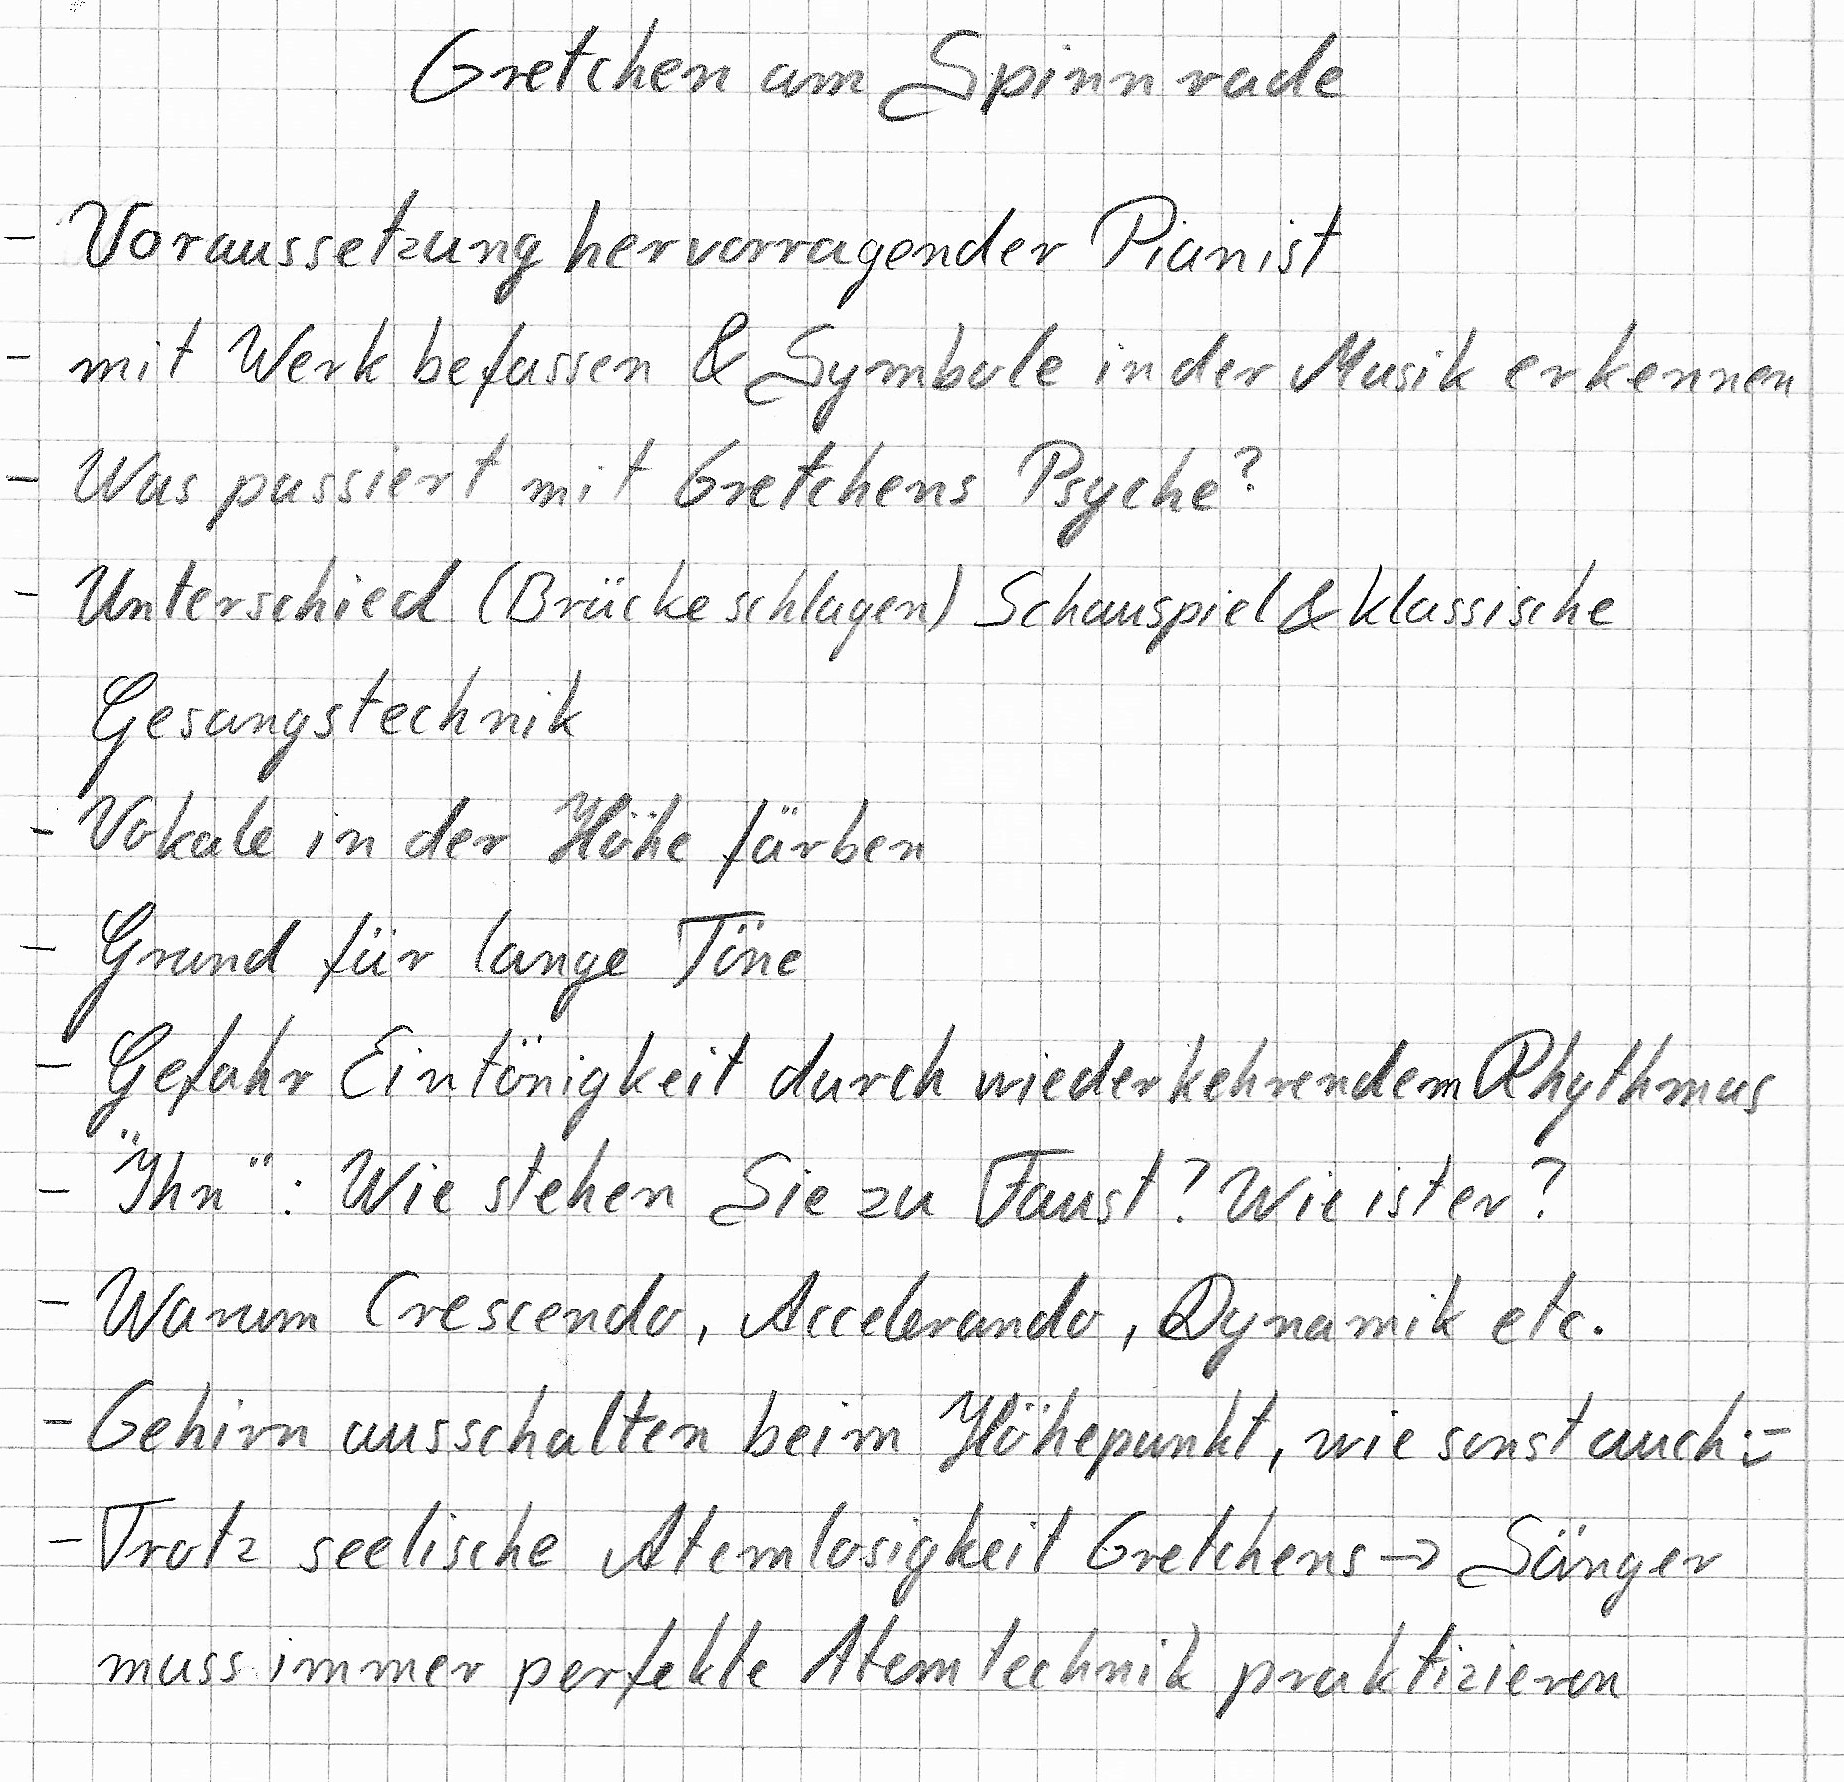 Gretchen am Spinnrade
- Voraussetzung hervorragender Pianist
- mit Werk befassen & Symbole in der Musik erkennen
- Was passiert mit Gretchens Psyche?
- Unterschied (Brücke schlagen) Schauspiel & klassische
Gesangstechnik
- Vokale in der Höhe färben
- Grund für lange Töne
- Gefahr Eintönigkeit durch wiederkehrendem Rhythmus
- "Ihn": Wie stehen Sie zu Faust? Wie ist er?
- Warum Crescendo, Accelerando, Dynamik etc.
- Gehirn ausschalten beim Höhepunkt, wie sonst auch :-
- Trotz seelische Atemlosigkeit Gretchens → Sänger
muss immer perfekte Atemtechnik praktizieren